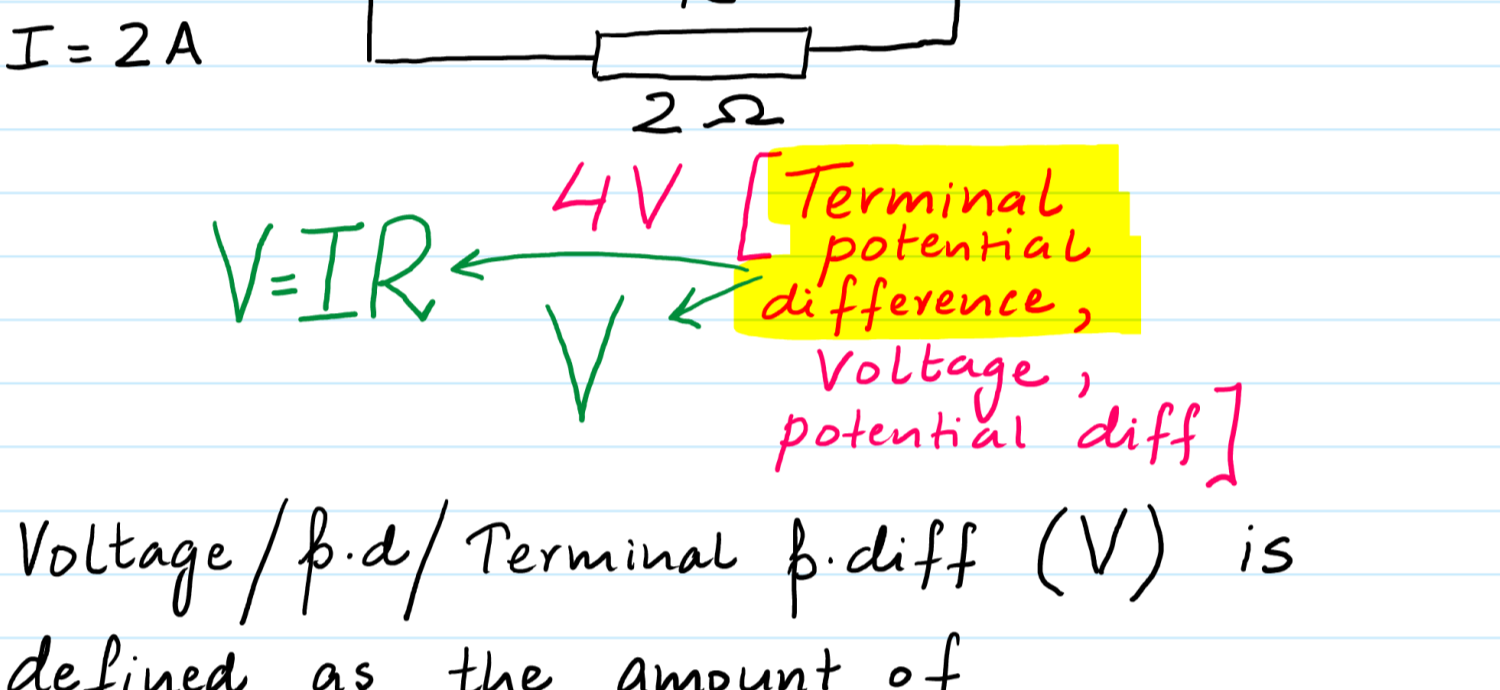 I = 2A
2 Ω
4V [Terminal
potential
V=IR
difference,
V
Voltage,
potential diff]
Voltage/p.d/Terminal p.diff (V) is
defined as the amount of